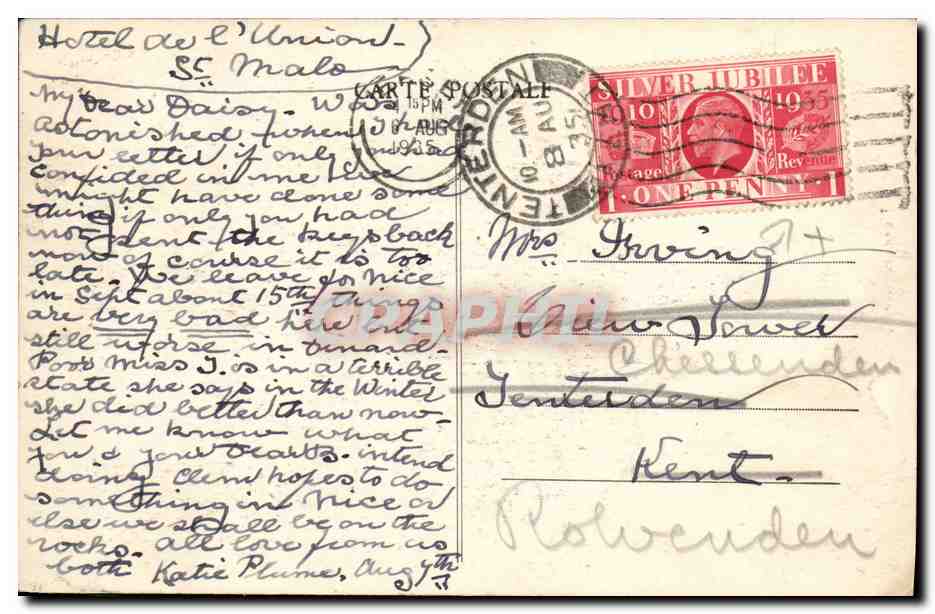 Hotel de l'Union
St Malo
My Dear Daisy - Was
astonished when I had
your letter if only you had
confided in me I
might have done some
thing if only you had
not sent the keys back
now of course it is too
late. We leave for Nice
in Sept about 15th things
are very bad here but
still worse in Dinard -
Poor Miss J. is in a terrible
state she says in the Winter
she did better than now -
Let me know what
you & your Dearts. intend
doing Clem hopes to do
something in Nice or
else we shall be on the
rocks. all love from us
both Katie Plume. Aug 7th
CARTE POSTALE
15 PM
AUG
1935
TENTERDEN
10 - AM
8 AU
35
SILVER JUBILEE
1910 1935
Postage Revenue
1 ONE PENNY 1
Mrs Irving
View Tower
Chessenden
Tenterden
Kent.
Rolvenden
CPAPHIL